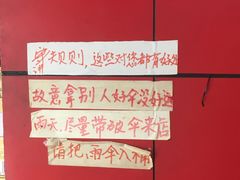 守规则，这些对您都有好处
故意拿别人好伞没好运
雨天，尽量带破伞来店
请把雨伞入桶